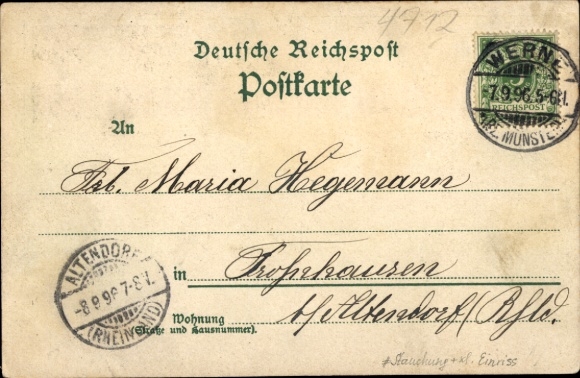 4712
Deutsche Reichspost
Postkarte
5
REICHSPOST
WERNE
7.9.96.5-6N.
BZ. MÜNSTER
An
Frl. Maria Hegemann
ALTENDORF
-8.9.96.7-8V.
(RHEINLAND)
in Frohnhausen
b/ Altendorf (Rhld.
Wohnung
(Straße und Hausnummer).
#Stauchung + kl. Einriss